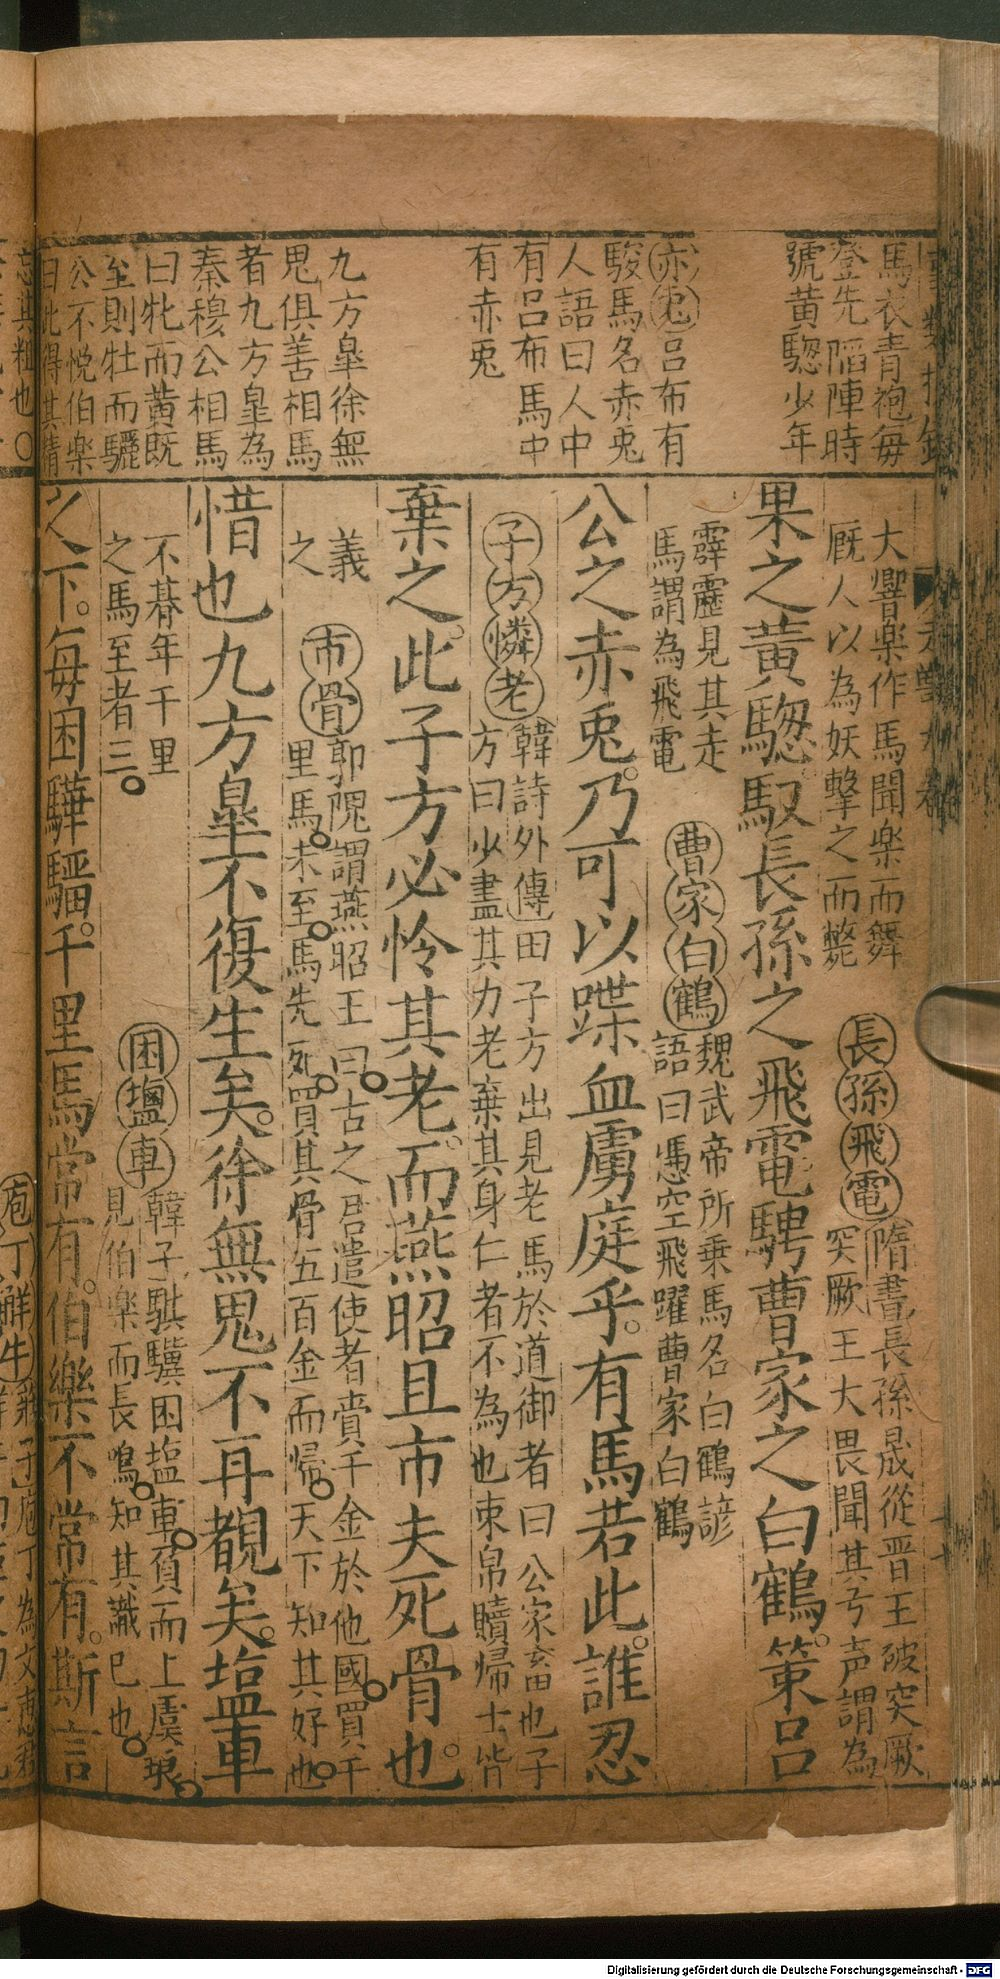 馬衣青袍每
登先陷陣時
號黃驄少年
赤兎呂布有
駿馬名赤兎
人語曰人中
有呂布馬中
有赤兎
九方臯徐無
鬼俱善相馬
者九方臯為
秦穆公相馬
曰牝而黃既
至則牡而驪
公不悅伯楽
曰此得其精
大響楽作馬聞楽而舞
厩人以為妖擊之而斃
長孫飛電
隋書長孫晟從晋王破突厥
突厥王大畏聞其弓声謂為
果之黃驄馭長孫之飛電騁曹家之白鶴。策呂
霹靂見其走
馬謂為飛電
曹家白鶴
魏武帝所乗馬名白鶴諺
語曰憑空飛躍曹家白鶴
公之赤兎。乃可以蹀血虜庭乎。有馬若此。誰忍
子方憐老
韓詩外傳田子方出見老馬於道御者曰公家畜也子
方曰少盡其力老棄其身仁者不為也束帛贖帰士皆
棄之。此子方必怜其老。而燕昭且市夫死骨也。
義
之
市骨
郭隗謂燕昭王曰古之君遣使者賫千金於他國買千
里馬未至馬先死買其骨五百金而帰天下知其好也
惜也九方臯不復生矣。徐無鬼不再覩矣。塩車
不朞年千里
之馬至者三
困塩車
韓子騏驥困塩車頁而上虞坂
見伯楽而長鳴知其識已也
之下。每困驊騮。千里馬常有。伯樂不常有。斯言
忘其粗也
庖丁解牛
莊子庖丁為文惠君
Digitalisierung gefördert durch die Deutsche Forschungsgemeinschaft - DFG